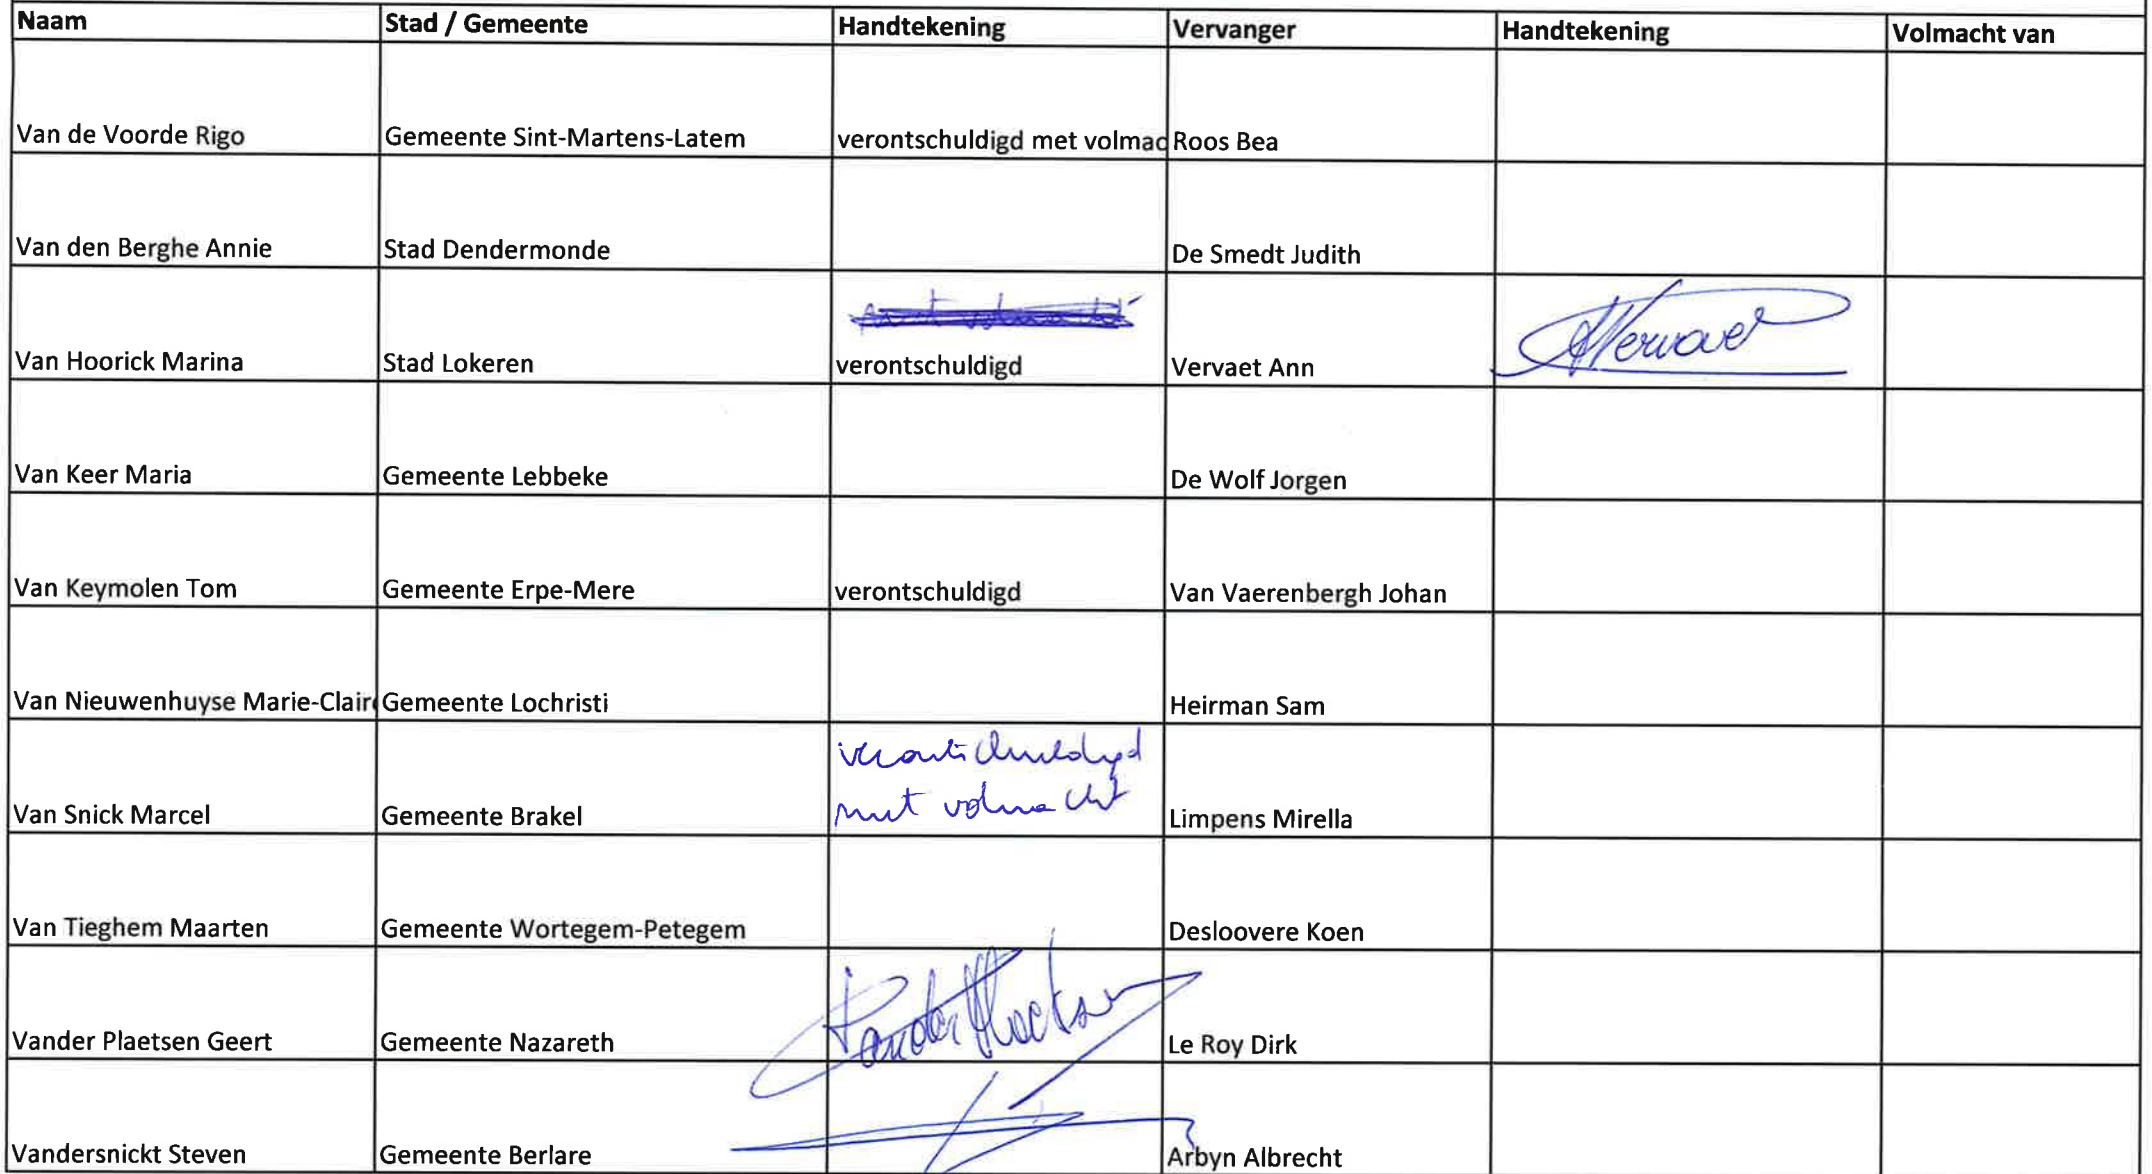 Naam Stad / Gemeente Handtekening Vervanger Handtekening Volmacht van
Van de Voorde Rigo Gemeente Sint-Martens-Latem verontschuldigd met volmac Roos Bea
Van den Berghe Annie Stad Dendermonde De Smedt Judith
Van Hoorick Marina Stad Lokeren verontschuldigd Vervaet Ann AVervaet
Van Keer Maria Gemeente Lebbeke De Wolf Jorgen
Van Keymolen Tom Gemeente Erpe-Mere verontschuldigd Van Vaerenbergh Johan
Van Nieuwenhuyse Marie-Clair Gemeente Lochristi Heirman Sam
verontschuldigd
met volmacht
Van Snick Marcel Gemeente Brakel Limpens Mirella
Van Tieghem Maarten Gemeente Wortegem-Petegem Desloovere Koen
Vander Plaetsen Geert Gemeente Nazareth Vander Plaetsen Le Roy Dirk
Vandersnickt Steven Gemeente Berlare Arbyn Albrecht